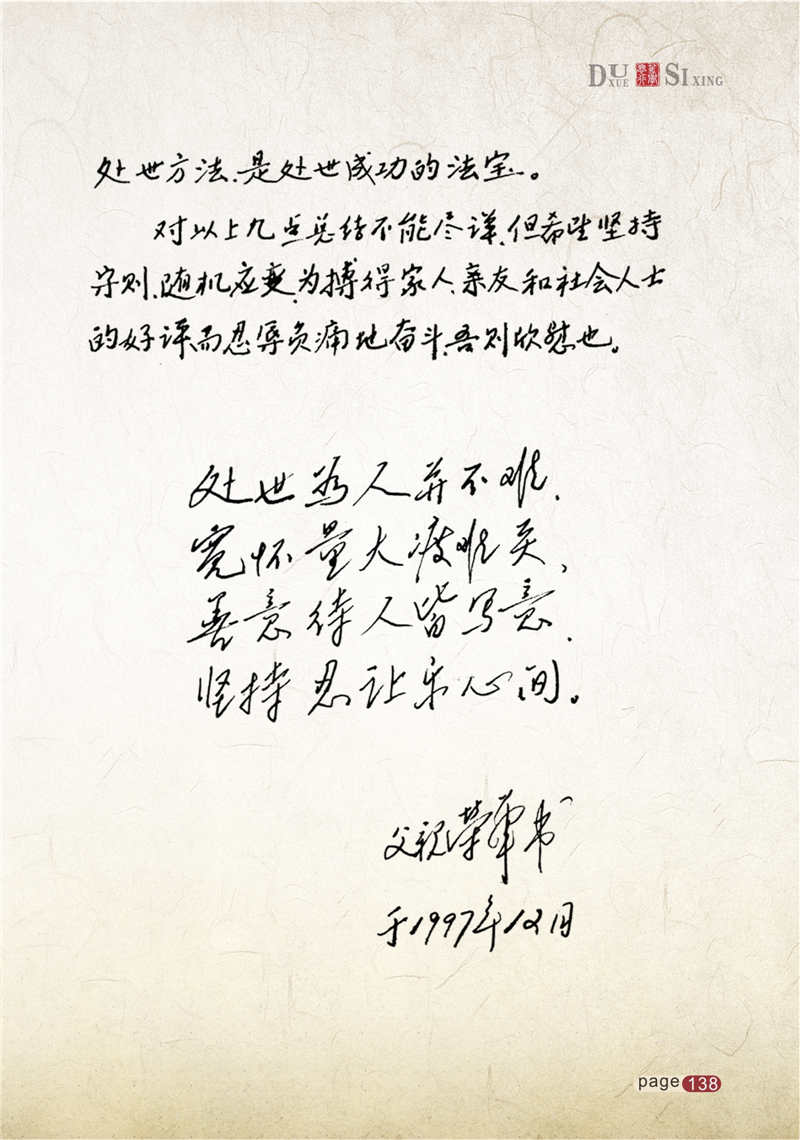 DUXUE SIXING
处世方法、是处世成功的法宝。
对以上九点总结不能尽详、但希望坚持
守则、随机应变、为搏得家人、亲友和社会人士
的好评而忍辱负痛地奋斗、吾则欣慰也。
处世为人并不难、
宽怀量大渡难关、
善意待人皆写意、
坚持忍让乐心间。
父祝荣军书
于1997年12月
page 138